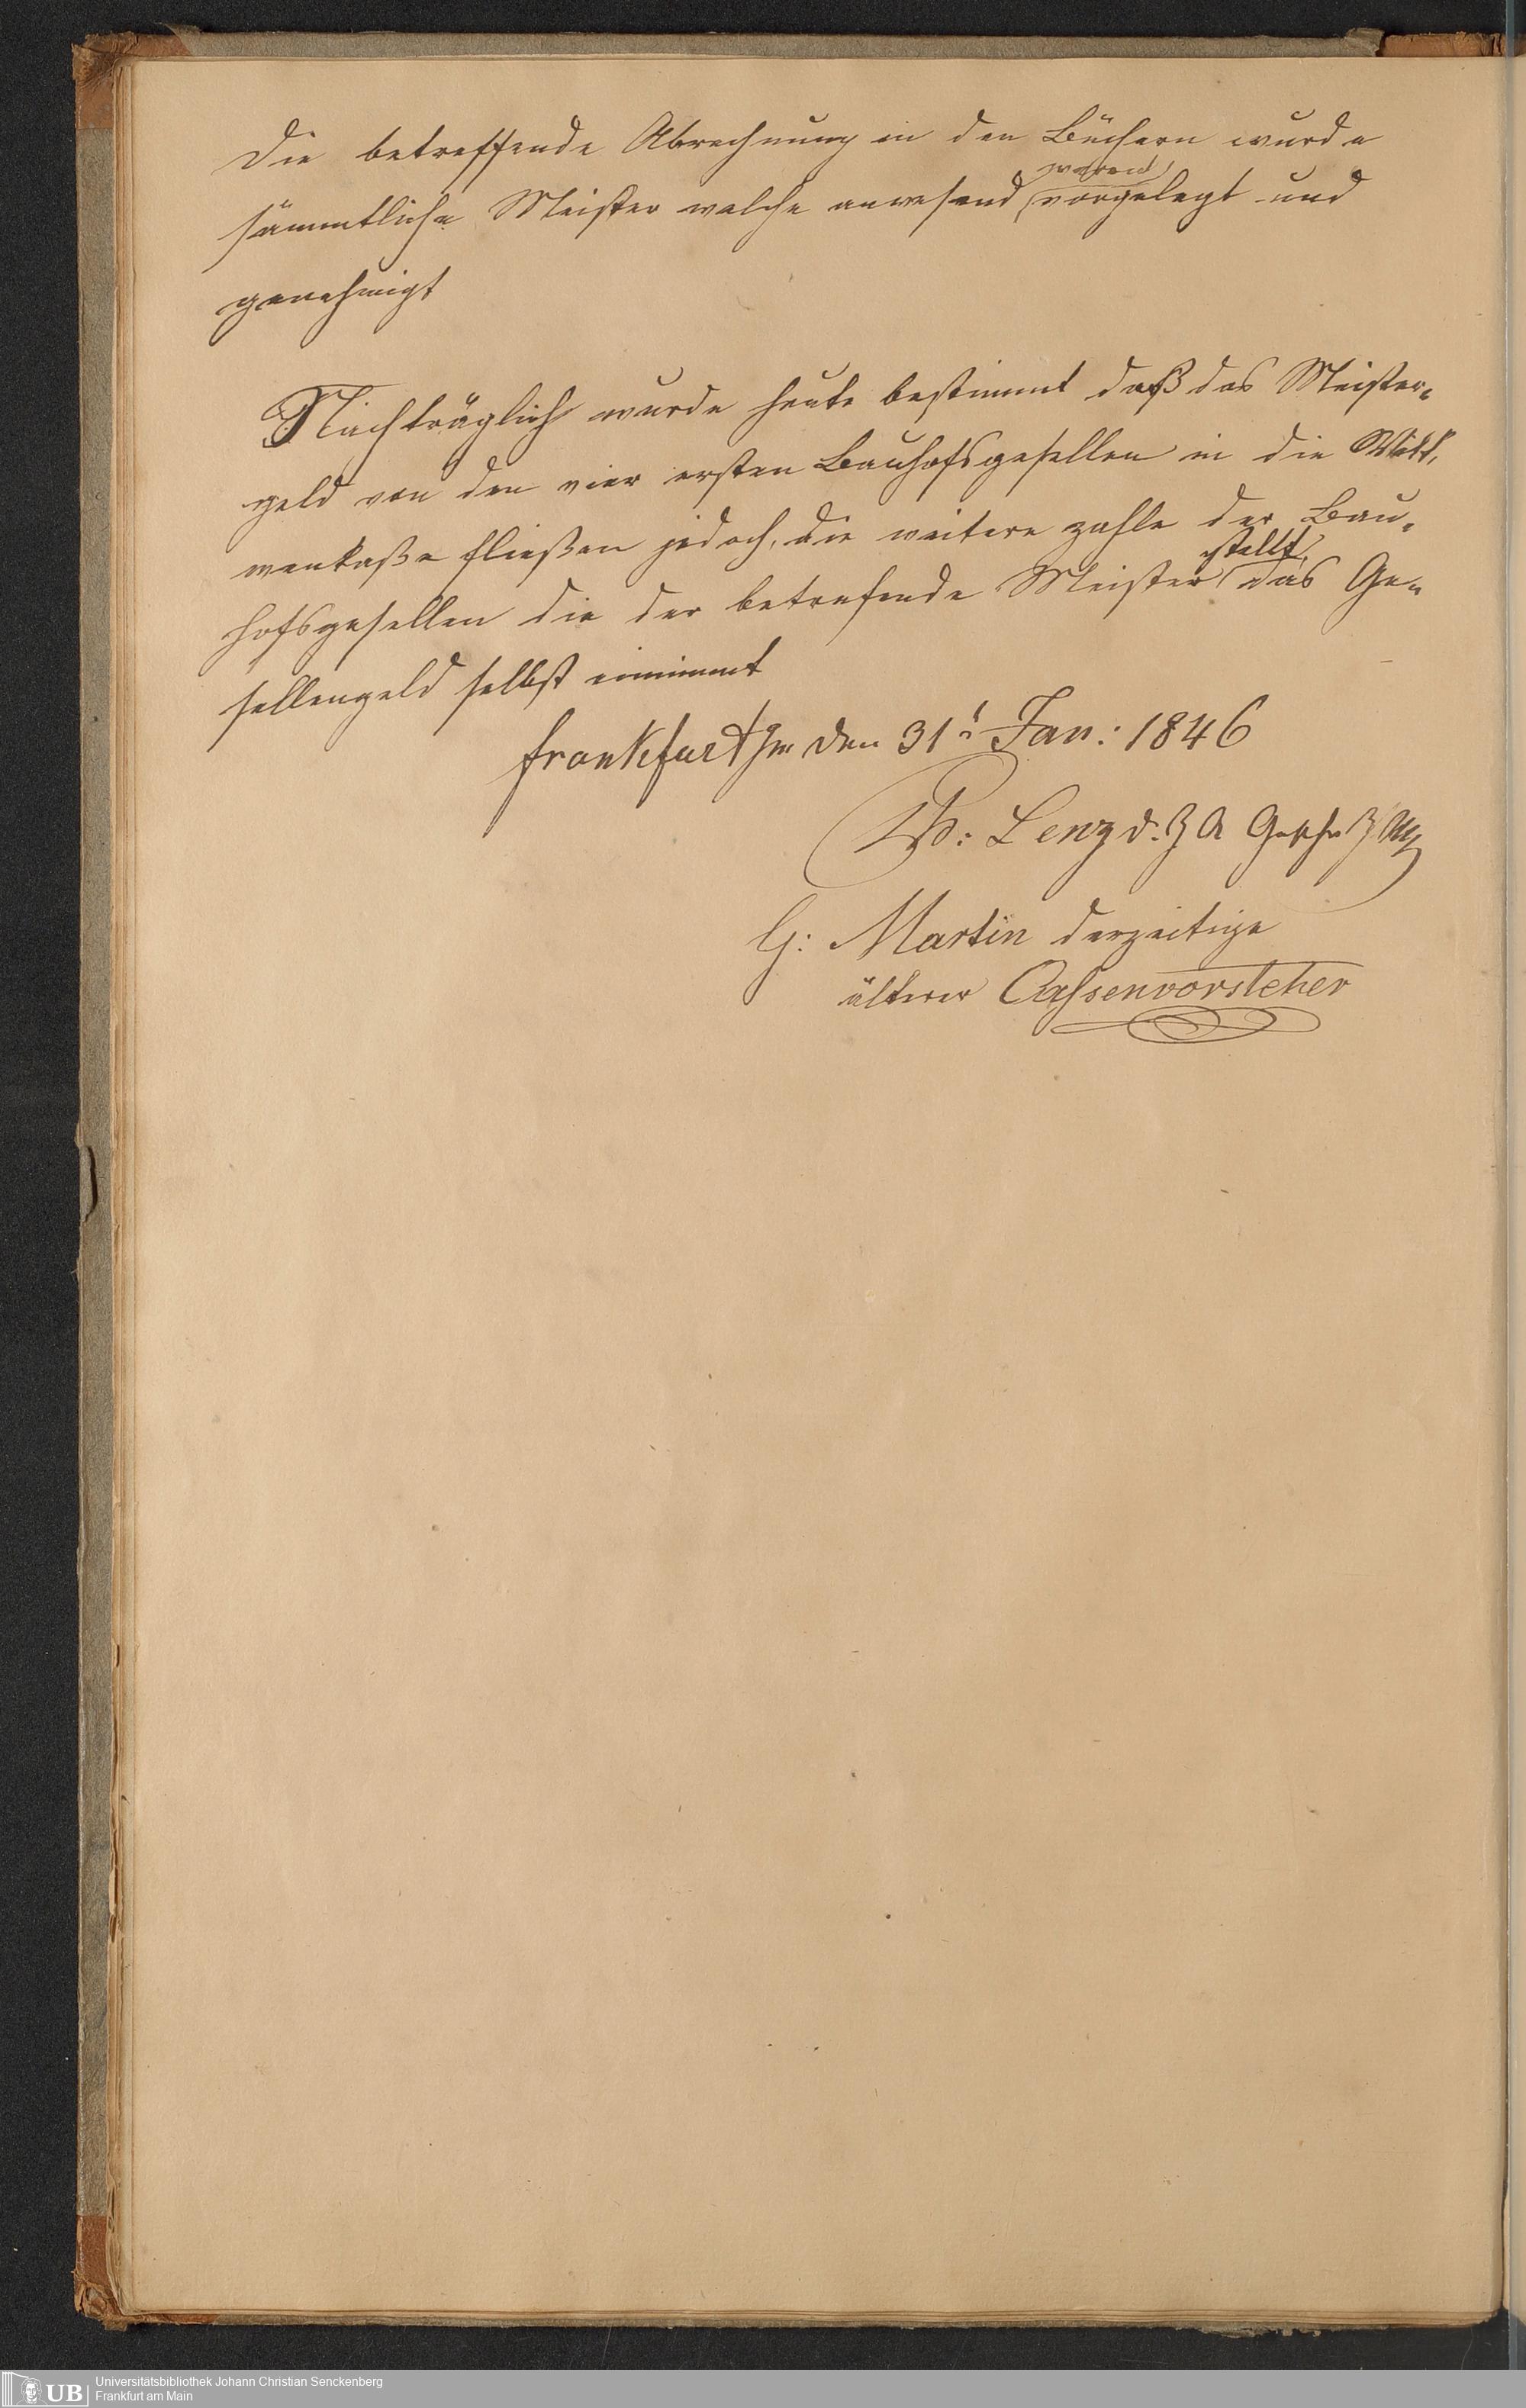 Die betreffende Abrechnung in den Büchern wurde
waren
sämmtliche Meister welche anwesend vorgelegt und
genehmigt
Nachträglich wurde heute bestimmt daß das Meister-
geld von den vier ersten Bauhofsgesellen in die Witt,
wenkaße fließen jedoch, die weitere zahle der Bau-
stellt,
hofsgesellen die der betrefende Meister das Ge-
sellengeld selbst einnimmt
Frankfurt den 31t Jan: 1846
Lenz d. Z
G: Martin derzeitige
älterer Cassenvorsteher
UB
Universitätsbibliothek Johann Christian Senckenberg
Frankfurt am Main